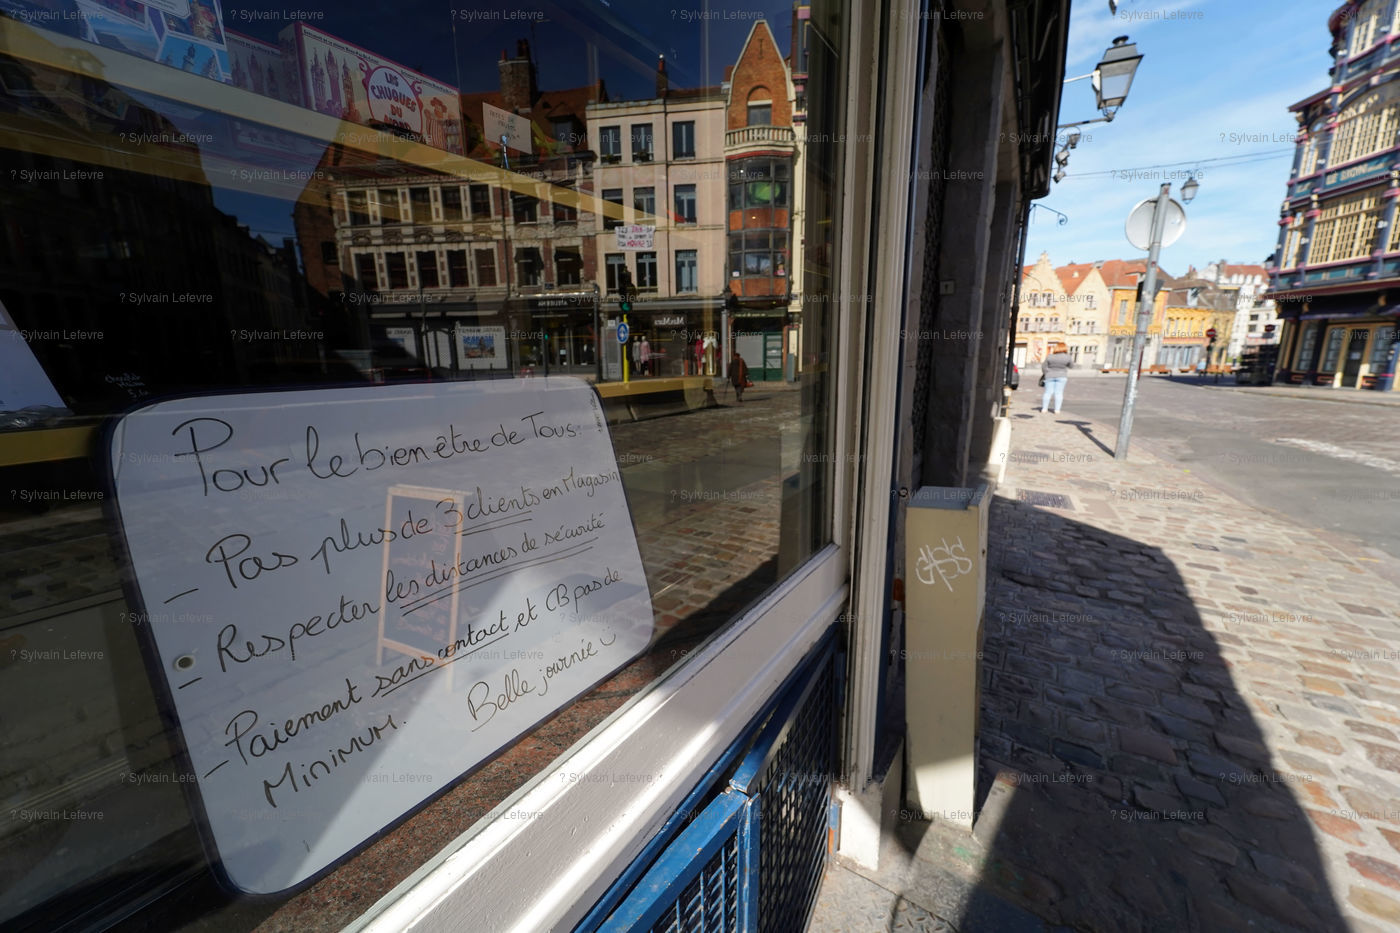 LES
CHUQUES
DU
NORD
LE LION
MaxMara
Pour le bien être de Tous:
- Pas plus de 3 clients en Magasin
- Respecter les distances de sécurité
- Paiement sans contact et CB pas de
Minimum.
Belle journée
? Sylvain Lefevre